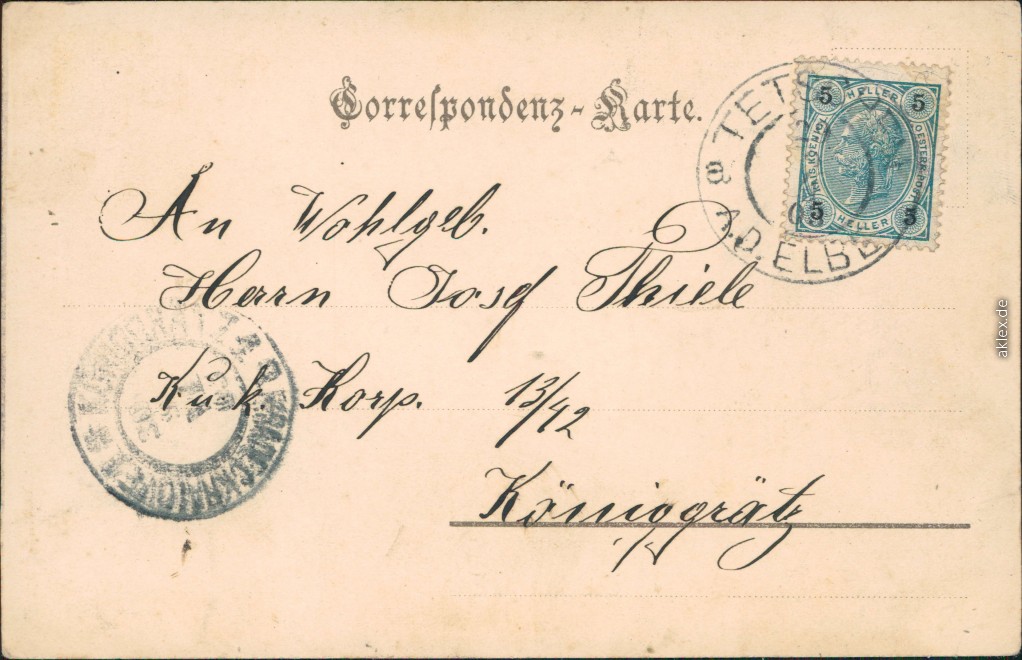 Correspondenz-Karte.
TETS
A.D. ELBE
5 HELLER 5
KAIS. KOENIGL. OESTERR. POST
5 HELLER 5
An Wohlgeb.
Herrn Josef Thiele
K u. k. Korp. 13/42
Königgrätz
KÖNIGGRÄTZ
aklex.de